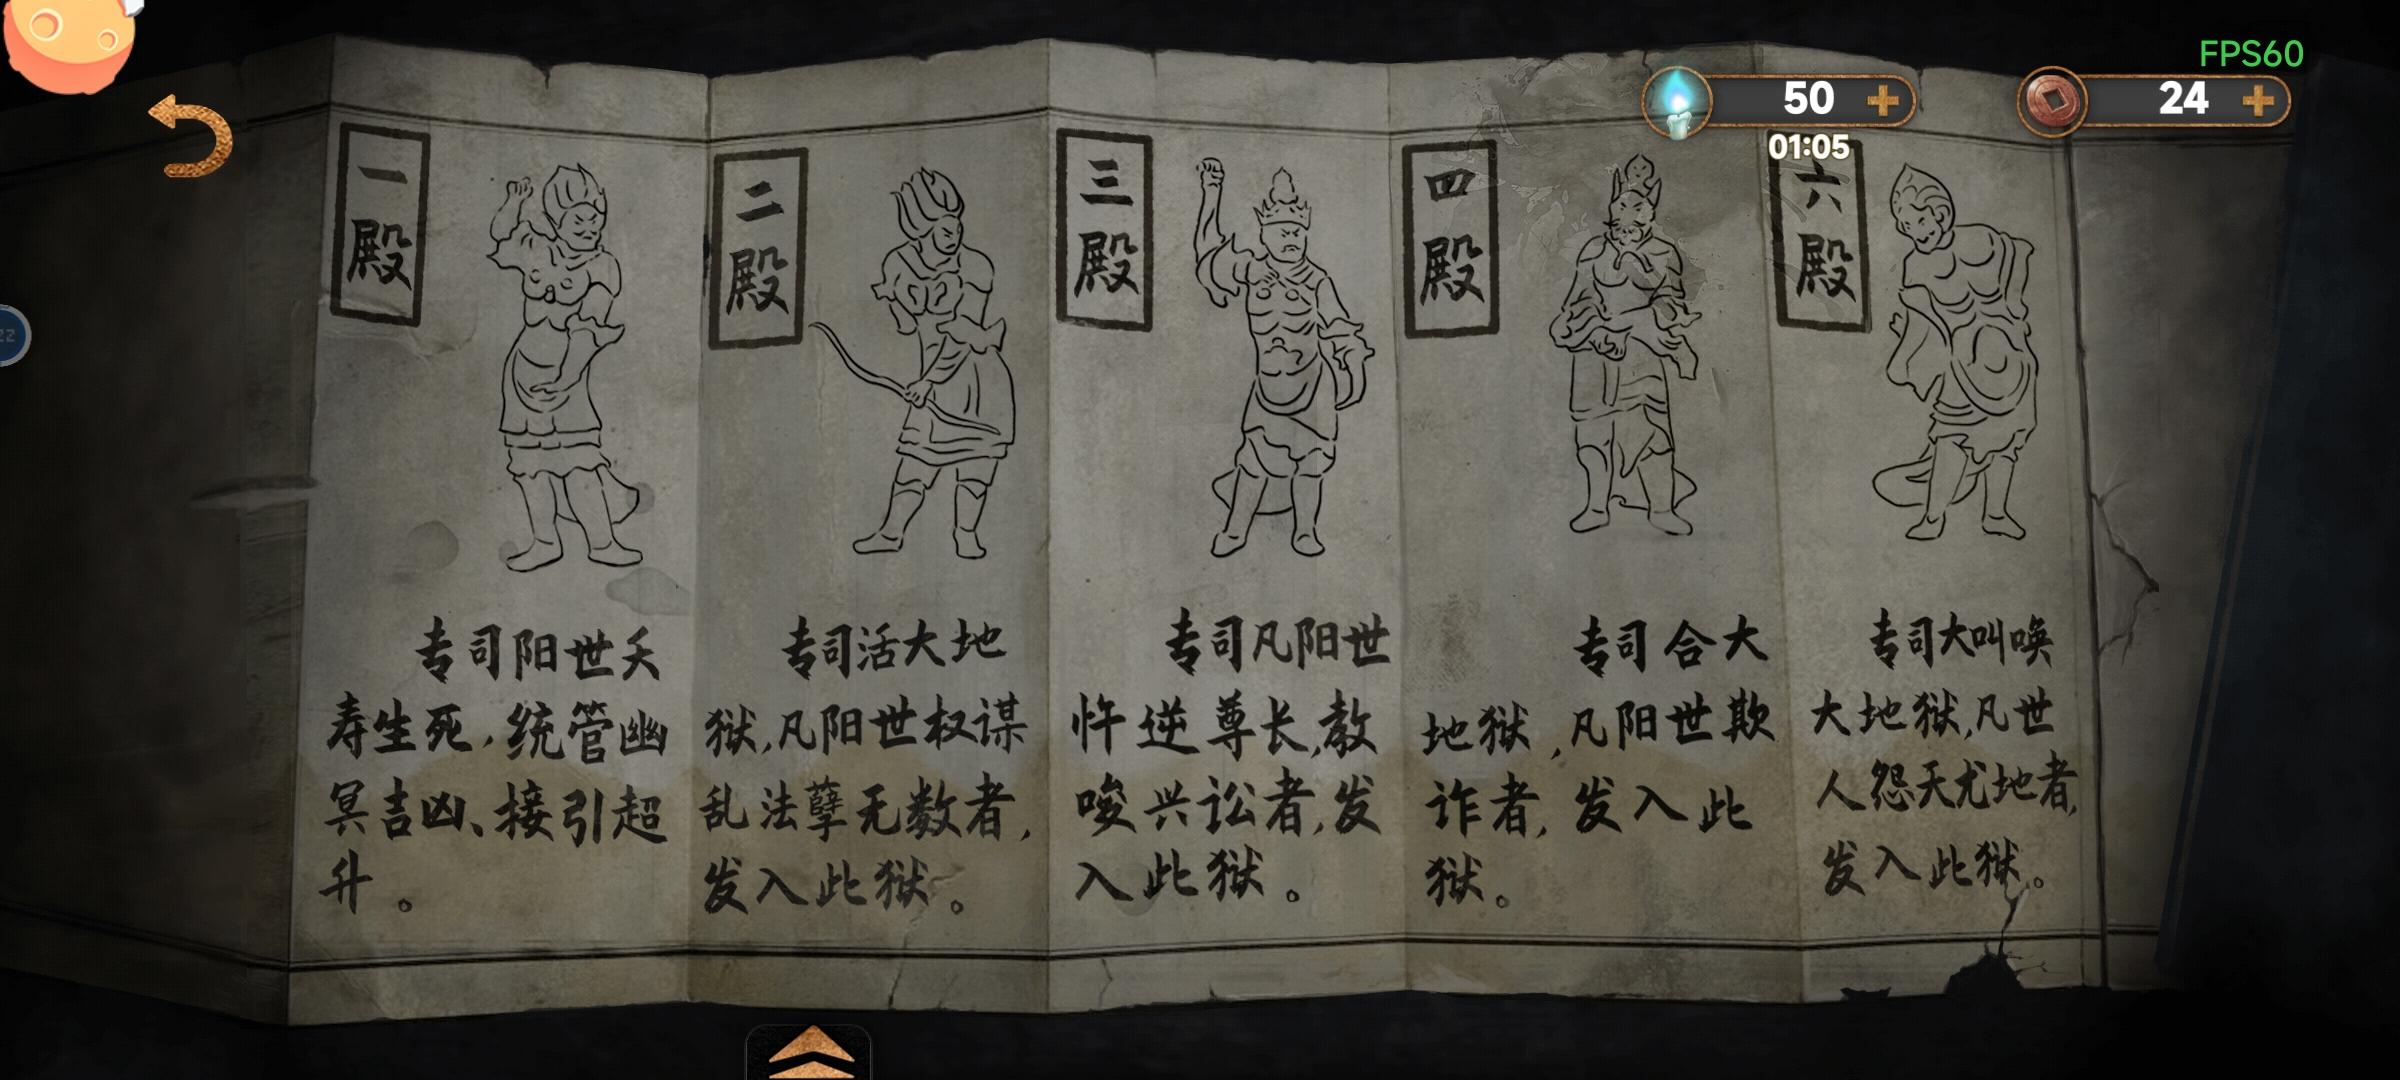 FPS60
50
24
01:05
22
一殿
专司阳世夭
寿生死,统管幽
冥吉凶、接引超
升。
二殿
专司活大地
狱,凡阳世权谋
乱法孽无数者,
发入此狱。
三殿
专司凡阳世
忤逆尊长,教
唆兴讼者,发
入此狱。
四殿
专司合大
地狱,凡阳世欺
诈者,发入此
狱。
六殿
专司大叫唤
大地狱,凡世
人怨天尤地者,
发入此狱。